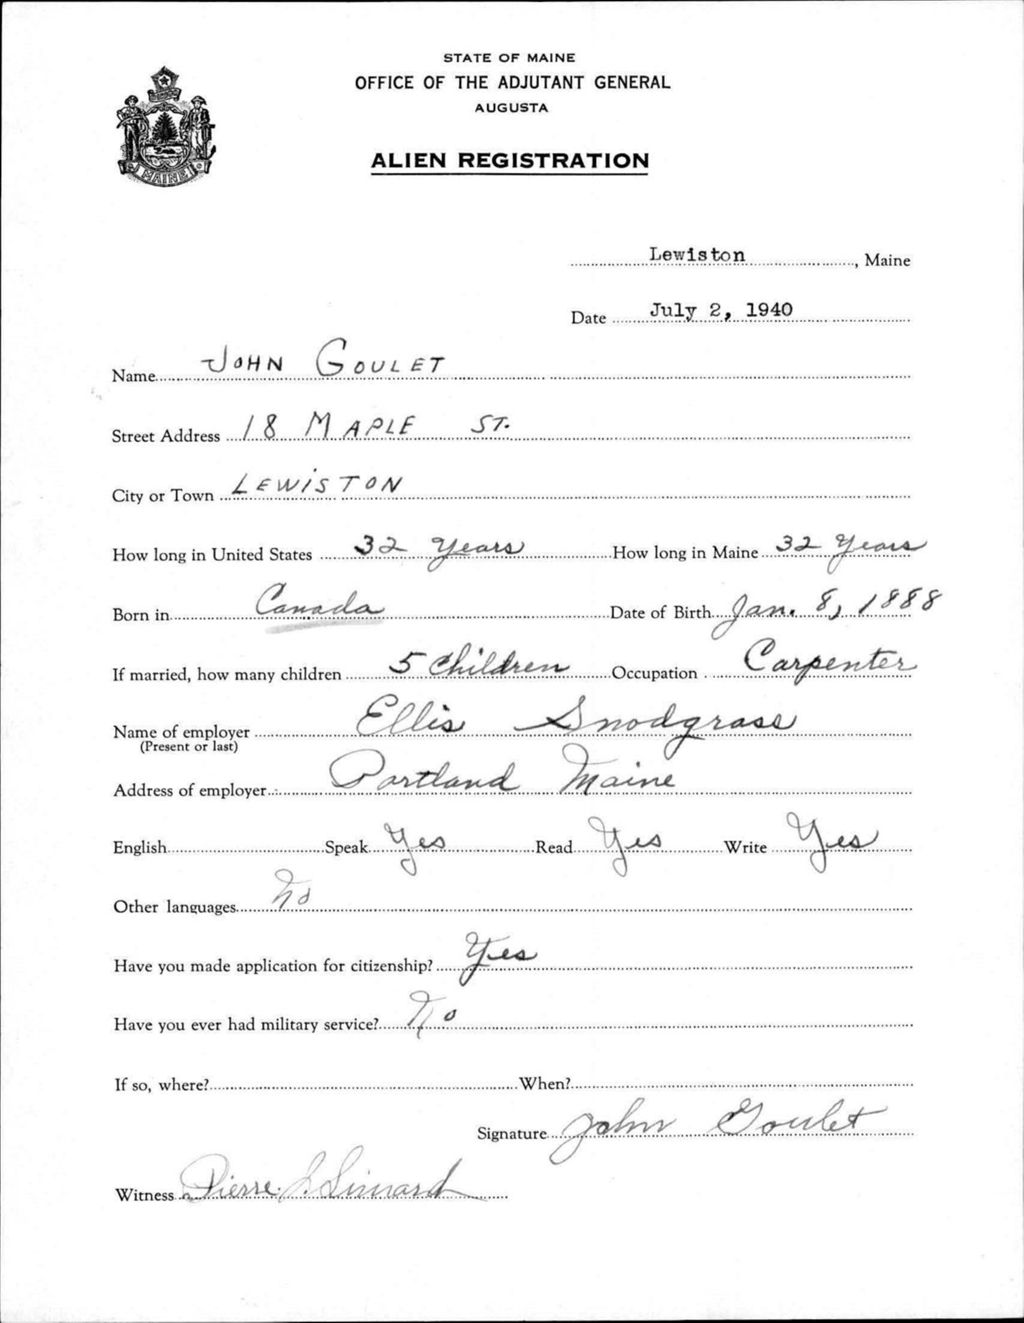 STATE OF MAINE
OFFICE OF THE ADJUTANT GENERAL
AUGUSTA
ALIEN REGISTRATION
MAINE
Lewiston, Maine
Date July 2, 1940
Name JOHN GOULET
Street Address 18 MAPLE ST.
City or Town LEWISTON
How long in United States 32 Years How long in Maine 32 Years
Born in Canada Date of Birth Jan. 8, 1888
If married, how many children 5 Children Occupation Carpenter
Name of employer Ellis Snodgrass
(Present or last)
Address of employer Portland Maine
English Speak Yes Read Yes Write Yes
Other languages No
Have you made application for citizenship? Yes
Have you ever had military service? No
If so, where? When?
Signature John Goulet
Witness Pierre J. Simard